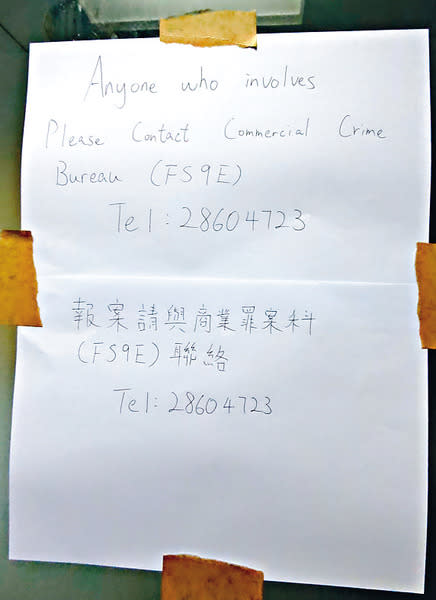 Anyone who involves
Please Contact Commercial Crime
Bureau (FS9E)
Tel: 28604723
報案請與商業罪案科
(FS9E) 聯絡
Tel: 28604723